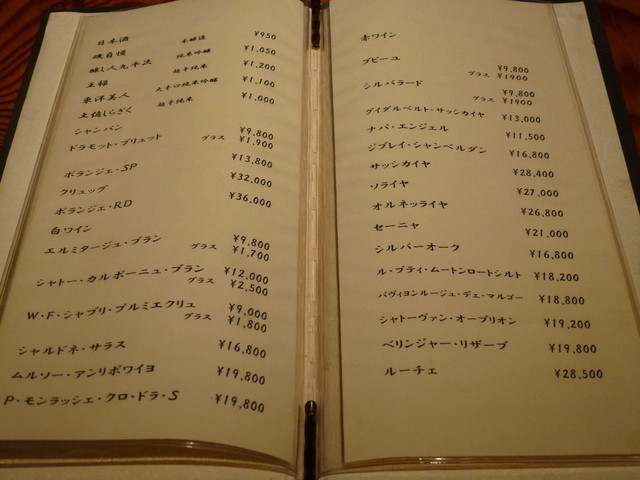 日本酒
磯自慢 本醸造 ¥950
醸し人九平次 純米吟醸 ¥1,050
王祿 超辛純米 ¥1,200
東洋美人 大辛口純米吟醸 ¥1,100
土佐しらぎく 超辛純米 ¥1,000
シャンパン
ドラモット・ブリュット ¥9,800
グラス ¥1,900
ボランジェ・SP ¥13,800
クリュッグ ¥32,000
ボランジェ・RD ¥36,000
白ワイン
エルミタージュ・ブラン ¥9,800
グラス ¥1,700
シャトー・カルボーニュ・ブラン ¥12,000
グラス ¥2,500
W・F・シャブリ・プルミエクリュ ¥9,000
グラス ¥1,800
シャルドネ・サラス ¥16,800
ムルソー・アンリボワイヨ ¥19,800
P・モンラッシェ・クロ・ドラ・S ¥19,800
赤ワイン
ブピーユ ¥9,800
グラス ¥1900
シルバラード ¥9,800
グラス ¥1900
グイダルベルト・サッシカイヤ ¥13,000
ナパ・エンジェル ¥11,500
ジブレイ・シャンベルダン ¥16,800
サッシカイヤ ¥28,400
ソライヤ ¥27,000
オルネッライヤ ¥26,800
セーニャ ¥21,000
シルバーオーク ¥16,800
ル・プティ・ムートンロートシルト ¥18,200
パヴィヨンルージュ・デュ・マルゴー ¥18,800
シャトーヴァン・オーブリオン ¥19,200
ベリンジャー・リザーブ ¥19,800
ルーチェ ¥28,500